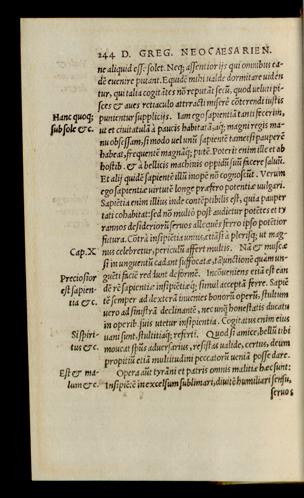 244 D. GREG. NEOCAESARIEN.
ne aliquid esse solet. Neq; assentior ijs qui omnibus ea-
dē evenire putant. Equidē mihi valde dormitare viden
tur, qui talia cogitātes nō reputāt secū, quod veluti pi-
sces & aves retiaculo attracti miserè cōterendi iustis
Hanc quoq; punientur supplicijs. Iam ego sapientiā tanti fecerim,
sub sole &c. ut et civitatulā à paucis habitatā, aq; magni regis ma-
nu obsessam, si modo vel unū sapientē tametsi pauperē
habeat, frequentē magnāq; putē. Poterit enim ille et ab
hostib. & à bellicis machinis oppidū suū facere salvū.
Et alij quidē sapientē illū inopē nō cognoscūt. Verum
ego sapientiæ virtutē longe præfero potentiæ vulgari.
Sapiētia enim illius inde contēptibilis est, quia pauper
tati cohabitat: sed nō multò pòst audiētur potētes et ty
rannos desideriores servos alleques ferro ipso potētior
futura. Cōtrà insipiētia unius, etiāsi à plerisq; ut mag-
Cap. X nus celebretur, periculū affert multis. Nā & muscæ
si in unguentū cadant suffocatæ, tā iunctione quam un-
Preciosior guētū faciē red lunt deformē. Incōveniens etiā est eān
est sapien- dē rē sapientiæ insipiētiæq; simul accepta ferre. Sapiē
tia &c. tē semper ad dexterā invenies honorū operū, stultum
vero ad sinistrā declinantē, nec unq̄ honestatis ducatu
in operib. suis utetur insipientia. Cogitatus enim eius
Si spiri- vani sunt, stultitiāq; referti. Quod si amice, bellū tibi
tus &c. moveat spūs adversarius, resistas valide, certus, deum
propitiū etiā multitudini peccatorū veniā posse dare.
Est & ma- Opera aūt tyrāni et patris omnis malitiæ hæc sunt:
lum &c. Insipiētē in excelsum sublimari, divitē humiliari sensu,
servos